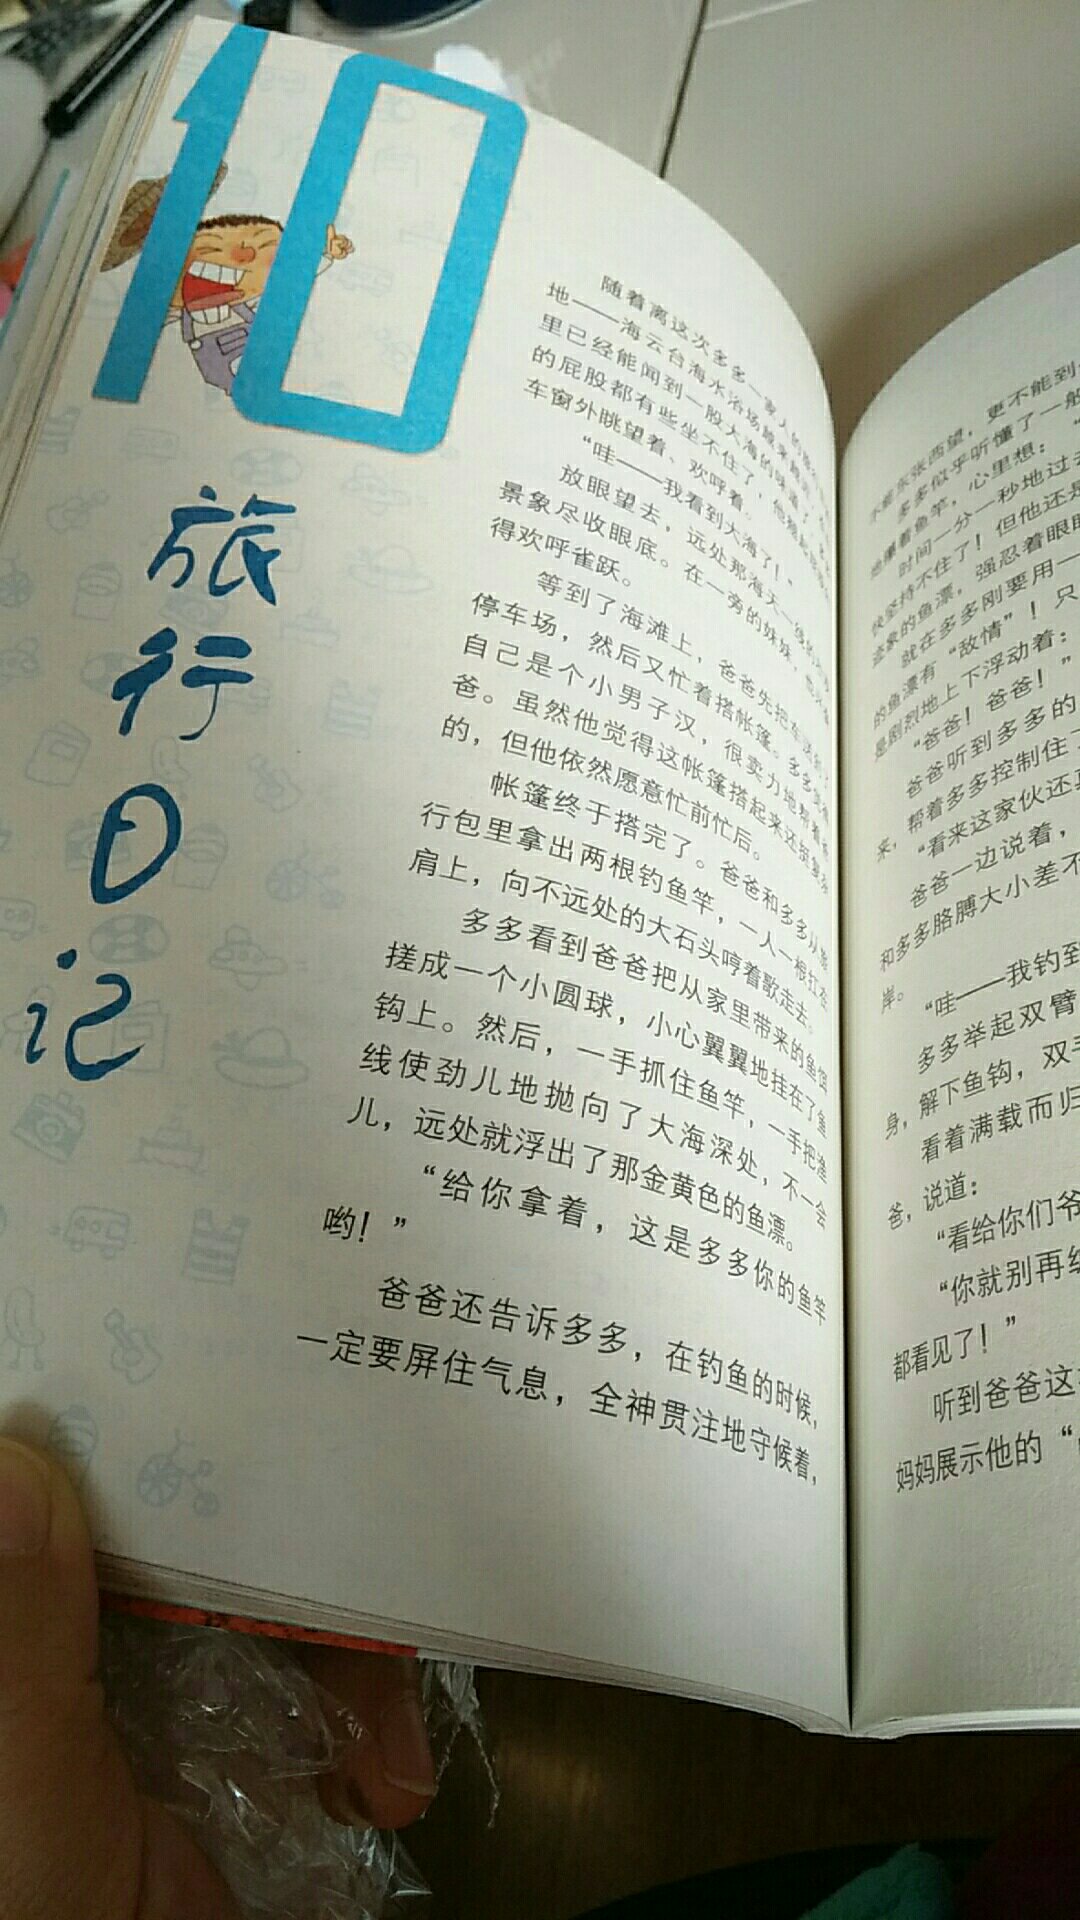 10
旅行日记
随着离这次多多一家人的
地——海云台海水浴场越来越
里已经能闻到一股大海的味道了，
的屁股都有些坐不住了，他
车窗外眺望着、欢呼着。
“哇——我看到大海了！”
放眼望去，远处那海天一
景象尽收眼底。在一旁的妹妹，也
得欢呼雀跃。
等到了海滩上，爸爸先把车
停车场，然后又忙着搭帐篷。多多
自己是个小男子汉，很卖力地帮着爸
爸。虽然他觉得这帐篷搭起来还挺
的，但他依然愿意忙前忙后。
帐篷终于搭完了。爸爸和多多从旅
行包里拿出两根钓鱼竿，一人一根扛在
肩上，向不远处的大石头哼着歌走去。
多多看到爸爸把从家里带来的鱼饵
搓成一个小圆球，小心翼翼地挂在了鱼
钩上。然后，一手抓住鱼竿，一手把渔
线使劲儿地抛向了大海深处，不一会
儿，远处就浮出了那金黄色的鱼漂。
“给你拿着，这是多多你的鱼竿
哟！”
爸爸还告诉多多，在钓鱼的时候，
一定要屏住气息，全神贯注地守候着，
不能东张西望，更不能到
多多似乎听懂了一般
地攥着鱼竿，心里想：“
时间一分一秒地过去
快坚持不住了！但他还是
的鱼漂，强忍着眼
就在多多刚要用一
的鱼漂有“敌情”！只
是剧烈地上下浮动着：
“爸爸！爸爸！”
爸爸听到多多的
来，帮着多多控制住了
“看来这家伙还真
爸爸一边说着，
和多多胳膊大小差不
岸。
“哇——我钓到
多多举起双臂
身，解下鱼钩，双手
看着满载而归
爸，说道：
“看给你们爷
“你就别再给
都看见了！”
听到爸爸这
妈妈展示他的“